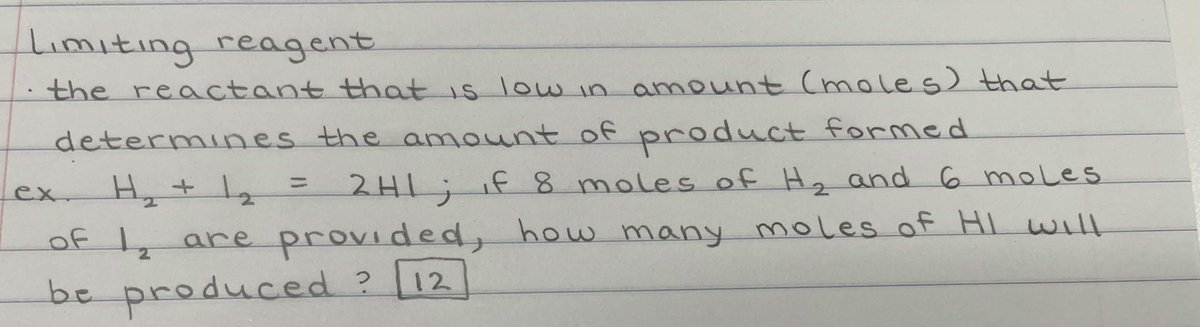 Limiting reagent
· the reactant that is low in amount (moles) that
determines the amount of product formed
ex. H₂ + I₂ = 2HI ; if 8 moles of H₂ and 6 moles
of I₂ are provided, how many moles of HI will
be produced ? 12